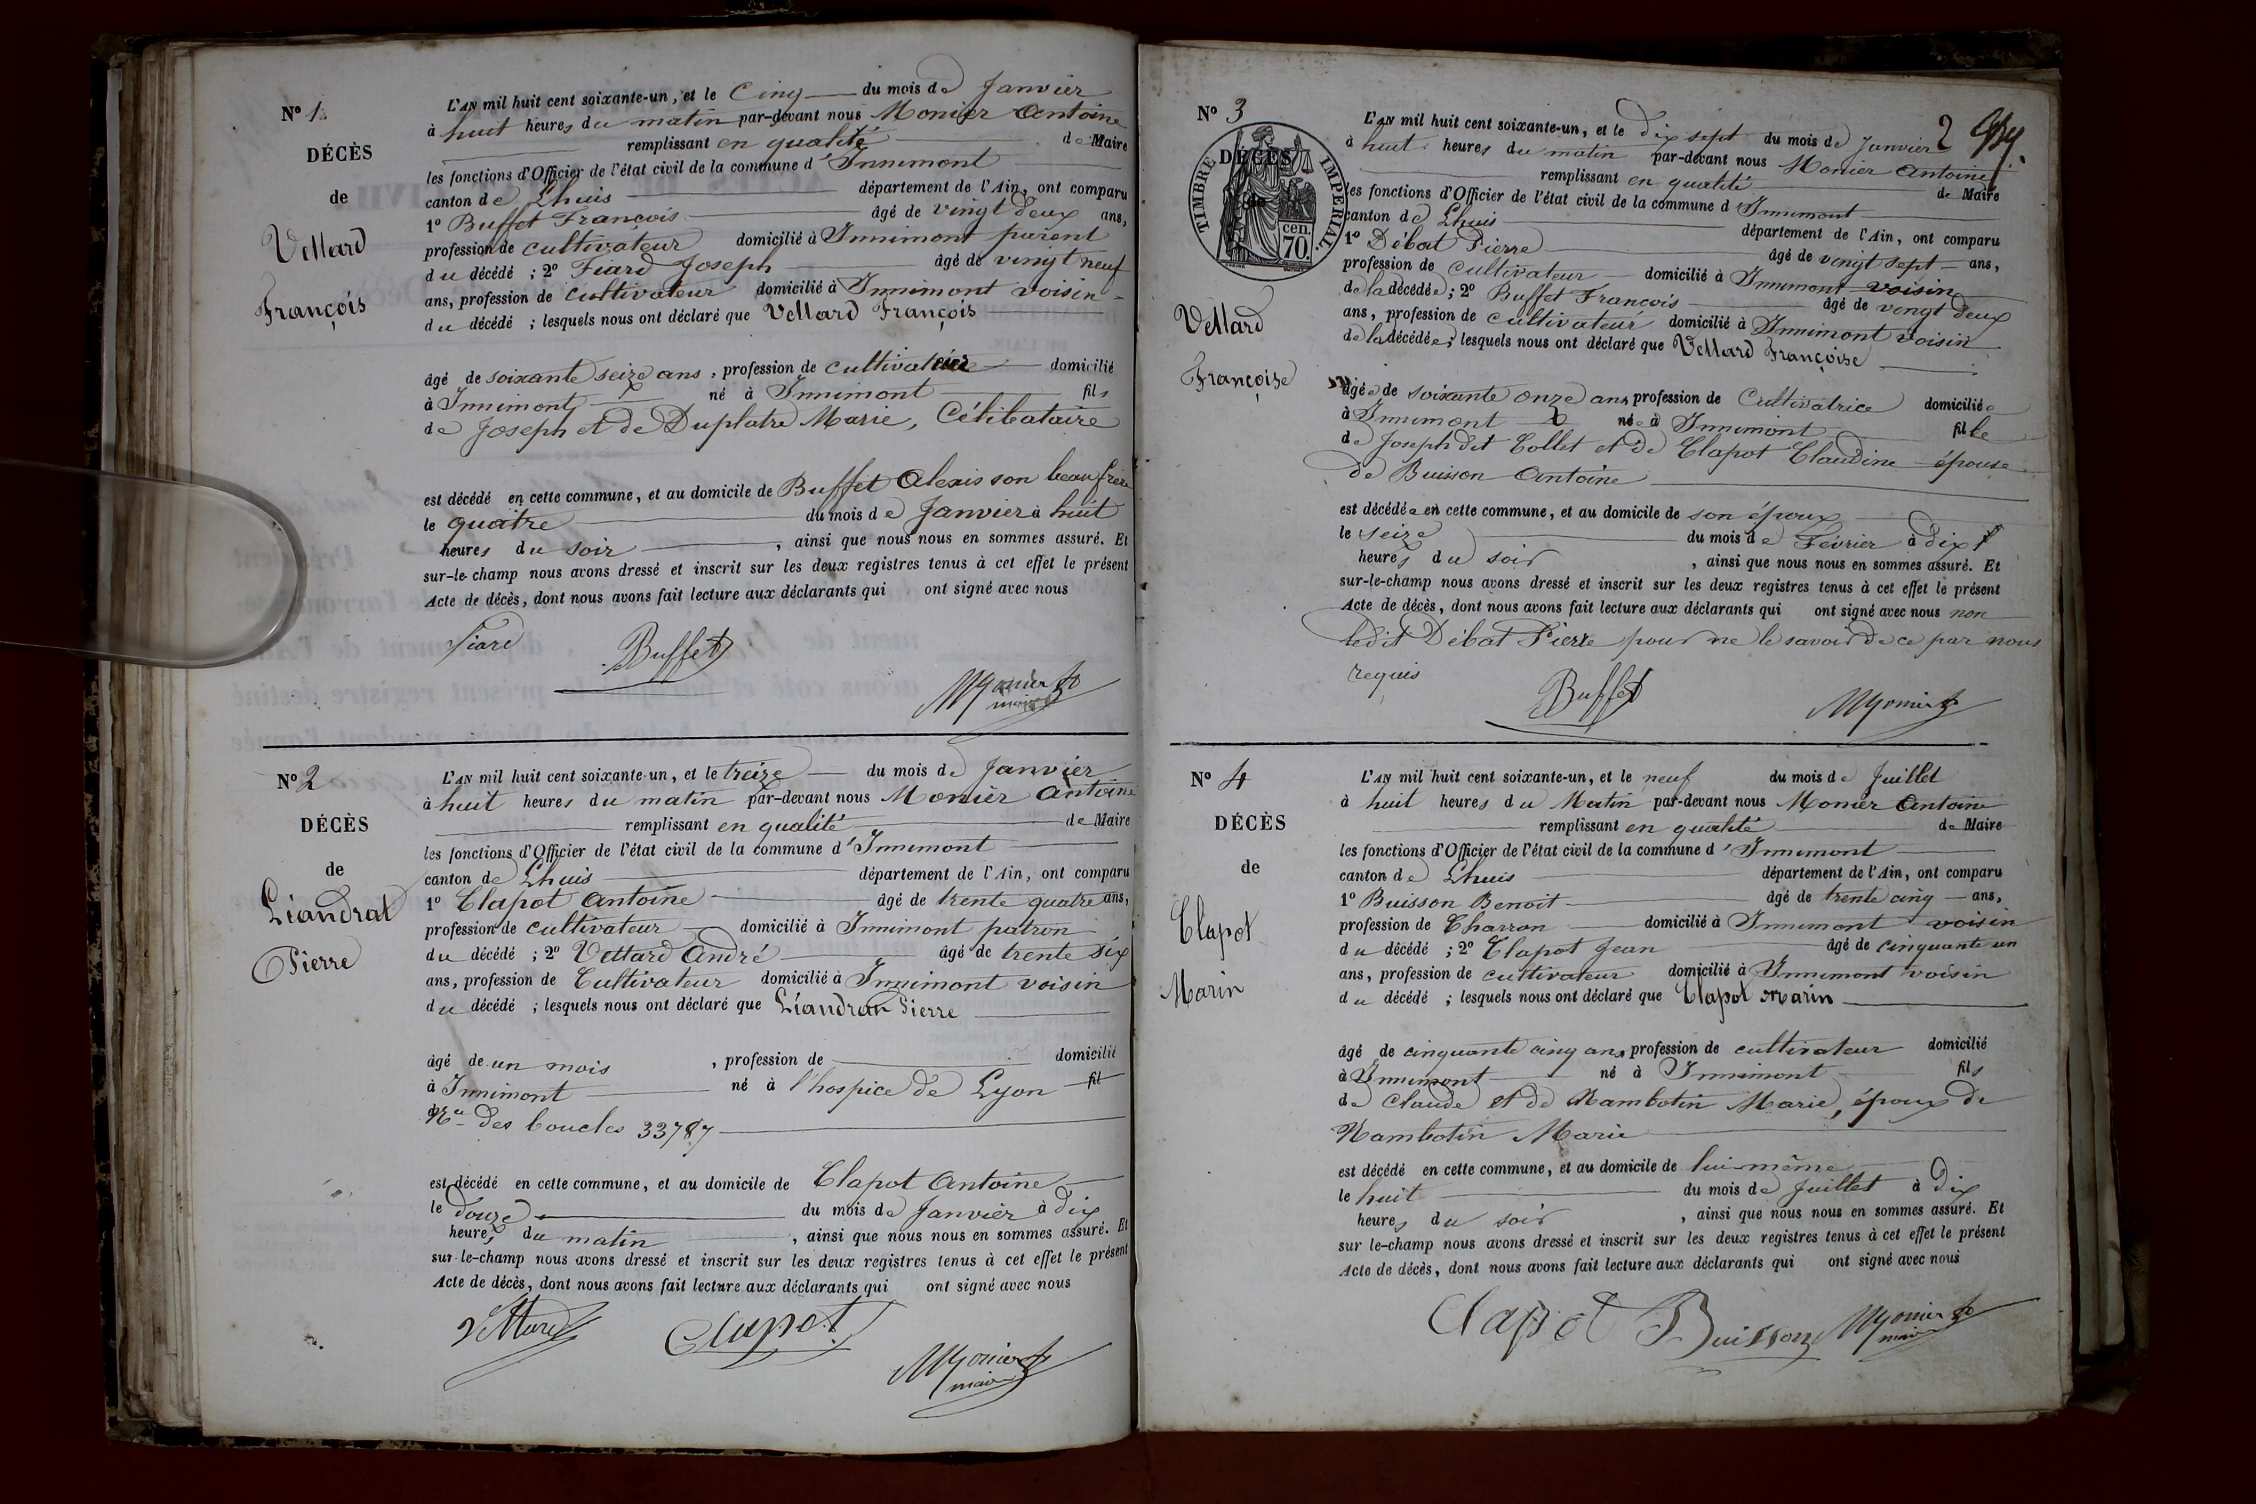 N° 1
DÉCÈS
de
Vettard
François
L'AN mil huit cent soixante-un, et le Cinq du mois de Janvier
à huit heures du matin par-devant nous Monier Antoine
remplissant en qualité de Maire
les fonctions d'Officier de l'état civil de la commune d'Innimont
canton de Lhuis département de l'Ain, ont comparu
1° Buffet François âgé de vingt deux ans,
profession de cultivateur domicilié à Innimont parent
du décédé ; 2° Fiard Joseph âgé de vingt neuf
ans, profession de cultivateur domicilié à Innimont voisin
du décédé ; lesquels nous ont déclaré que Vettard François
âgé de soixante seize ans, profession de cultivateur domicilié
à Innimont né à Innimont fils
de Joseph et de Duplatre Marie, Célibataire
est décédé en cette commune, et au domicile de Buffet Alexis son beau frère
le quatre du mois de Janvier à huit
heures du soir, ainsi que nous nous en sommes assuré. Et
sur-le-champ nous avons dressé et inscrit sur les deux registres tenus à cet effet le présent
Acte de décès, dont nous avons fait lecture aux déclarants qui ont signé avec nous
Fiard Buffet
Monier
maire
N° 2
DÉCÈS
de
Liandrat
Pierre
L'AN mil huit cent soixante-un, et le treize du mois de Janvier
à huit heures du matin par-devant nous Monier Antoine
remplissant en qualité de Maire
les fonctions d'Officier de l'état civil de la commune d'Innimont
canton de Lhuis département de l'Ain, ont comparu
1° Clapot Antoine âgé de trente quatre ans,
profession de cultivateur domicilié à Innimont patron
du décédé ; 2° Vettard André âgé de trente six
ans, profession de Cultivateur domicilié à Innimont voisin
du décédé ; lesquels nous ont déclaré que Liandrat Pierre
âgé de un mois, profession de domicilié
à Innimont né à l'hospice de Lyon fil
de
N° des boucles 33787
est décédé en cette commune, et au domicile de Clapot Antoine
le douze du mois de Janvier à dix
heures du matin, ainsi que nous nous en sommes assuré. Et
sur-le-champ nous avons dressé et inscrit sur les deux registres tenus à cet effet le présent
Acte de décès, dont nous avons fait lecture aux déclarants qui ont signé avec nous
Vettard Clapot
Monier
maire
2
N° 3
DÉCÈS
de
TIMBRE IMPERIAL.
70.
cen.
Vettard
Françoise
L'AN mil huit cent soixante-un, et le dix sept du mois de Janvier
à huit heures du matin par-devant nous Monier Antoine
remplissant en qualité de Maire
les fonctions d'Officier de l'état civil de la commune d'Innimont
canton de Lhuis département de l'Ain, ont comparu
1° Débat Pierre âgé de vingt sept ans,
profession de cultivateur domicilié à Innimont voisin
de la décédée ; 2° Buffet François âgé de vingt deux
ans, profession de cultivateur domicilié à Innimont voisin
de la décédée ; lesquels nous ont déclaré que Vettard Françoise
âgée de soixante onze ans, profession de Cultivatrice domiciliée
à Innimont née à Innimont fille
de Joseph dit Collet et de Clapot Claudine épouse
de Buisson Antoine
est décédée en cette commune, et au domicile de son époux
le seize du mois de Février à dix
heures du soir, ainsi que nous nous en sommes assuré. Et
sur-le-champ nous avons dressé et inscrit sur les deux registres tenus à cet effet le présent
Acte de décès, dont nous avons fait lecture aux déclarants qui ont signé avec nous non
ledit Débat Pierre pour ne le savoir de ce par nous
requis
Buffet Monier
N° 4
DÉCÈS
de
Clapot
Marin
L'AN mil huit cent soixante-un, et le neuf du mois de Juillet
à huit heures du Matin par-devant nous Monier Antoine
remplissant en qualité de Maire
les fonctions d'Officier de l'état civil de la commune d'Innimont
canton de Lhuis département de l'Ain, ont comparu
1° Buisson Benoit âgé de trente cinq ans,
profession de Charron domicilié à Innimont voisin
du décédé ; 2° Clapot Jean âgé de cinquante un
ans, profession de cultivateur domicilié à Innimont voisin
du décédé ; lesquels nous ont déclaré que Clapot Marin
âgé de cinquante cinq ans, profession de cultivateur domicilié
à Innimont né à Innimont fils
de Claude et de Rambotin Marie, époux de
Rambotin Marie
est décédé en cette commune, et au domicile de lui-même
le huit du mois de Juillet à dix
heures du soir, ainsi que nous nous en sommes assuré. Et
sur le-champ nous avons dressé et inscrit sur les deux registres tenus à cet effet le présent
Acte de décès, dont nous avons fait lecture aux déclarants qui ont signé avec nous
Clapot Buisson Monier
maire